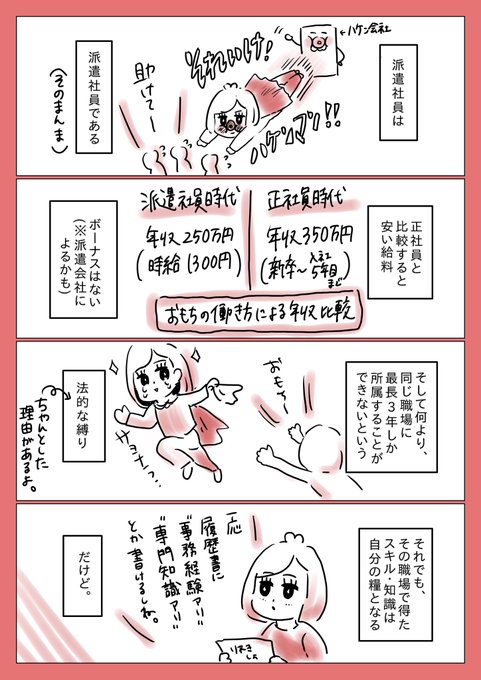 派遣社員は
ハケン会社
それいけ!
ハケンマン!!
助けてー
派遣社員である
(そのまんま)
正社員と
比較すると
安い給料
正社員時代
年収350万円
(新卒〜入社5年目まで)
派遣社員時代
年収250万円
(時給1300円)
おもちの働き方による年収比較
ボーナスはない
(※派遣会社に
よるかも)
そして何より、
同じ職場に
最長3年しか
所属することが
できないという
おもちー
サヨナラ…
法的な縛り
ちゃんとした
理由があるよ。
それでも、
その職場で得た
スキル・知識は
自分の糧となる
一応
履歴書に
"事務経験アリ"
"専門知識アリ"
とか書けるしね。
りれき
しょ
だけど。